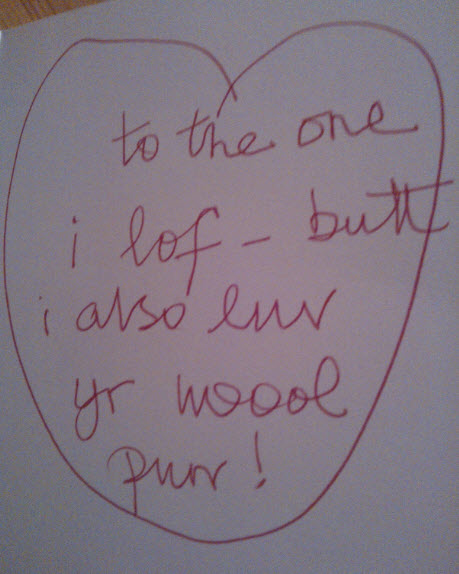 to the one
i lof - butt
i also luv
yr woool
purr!